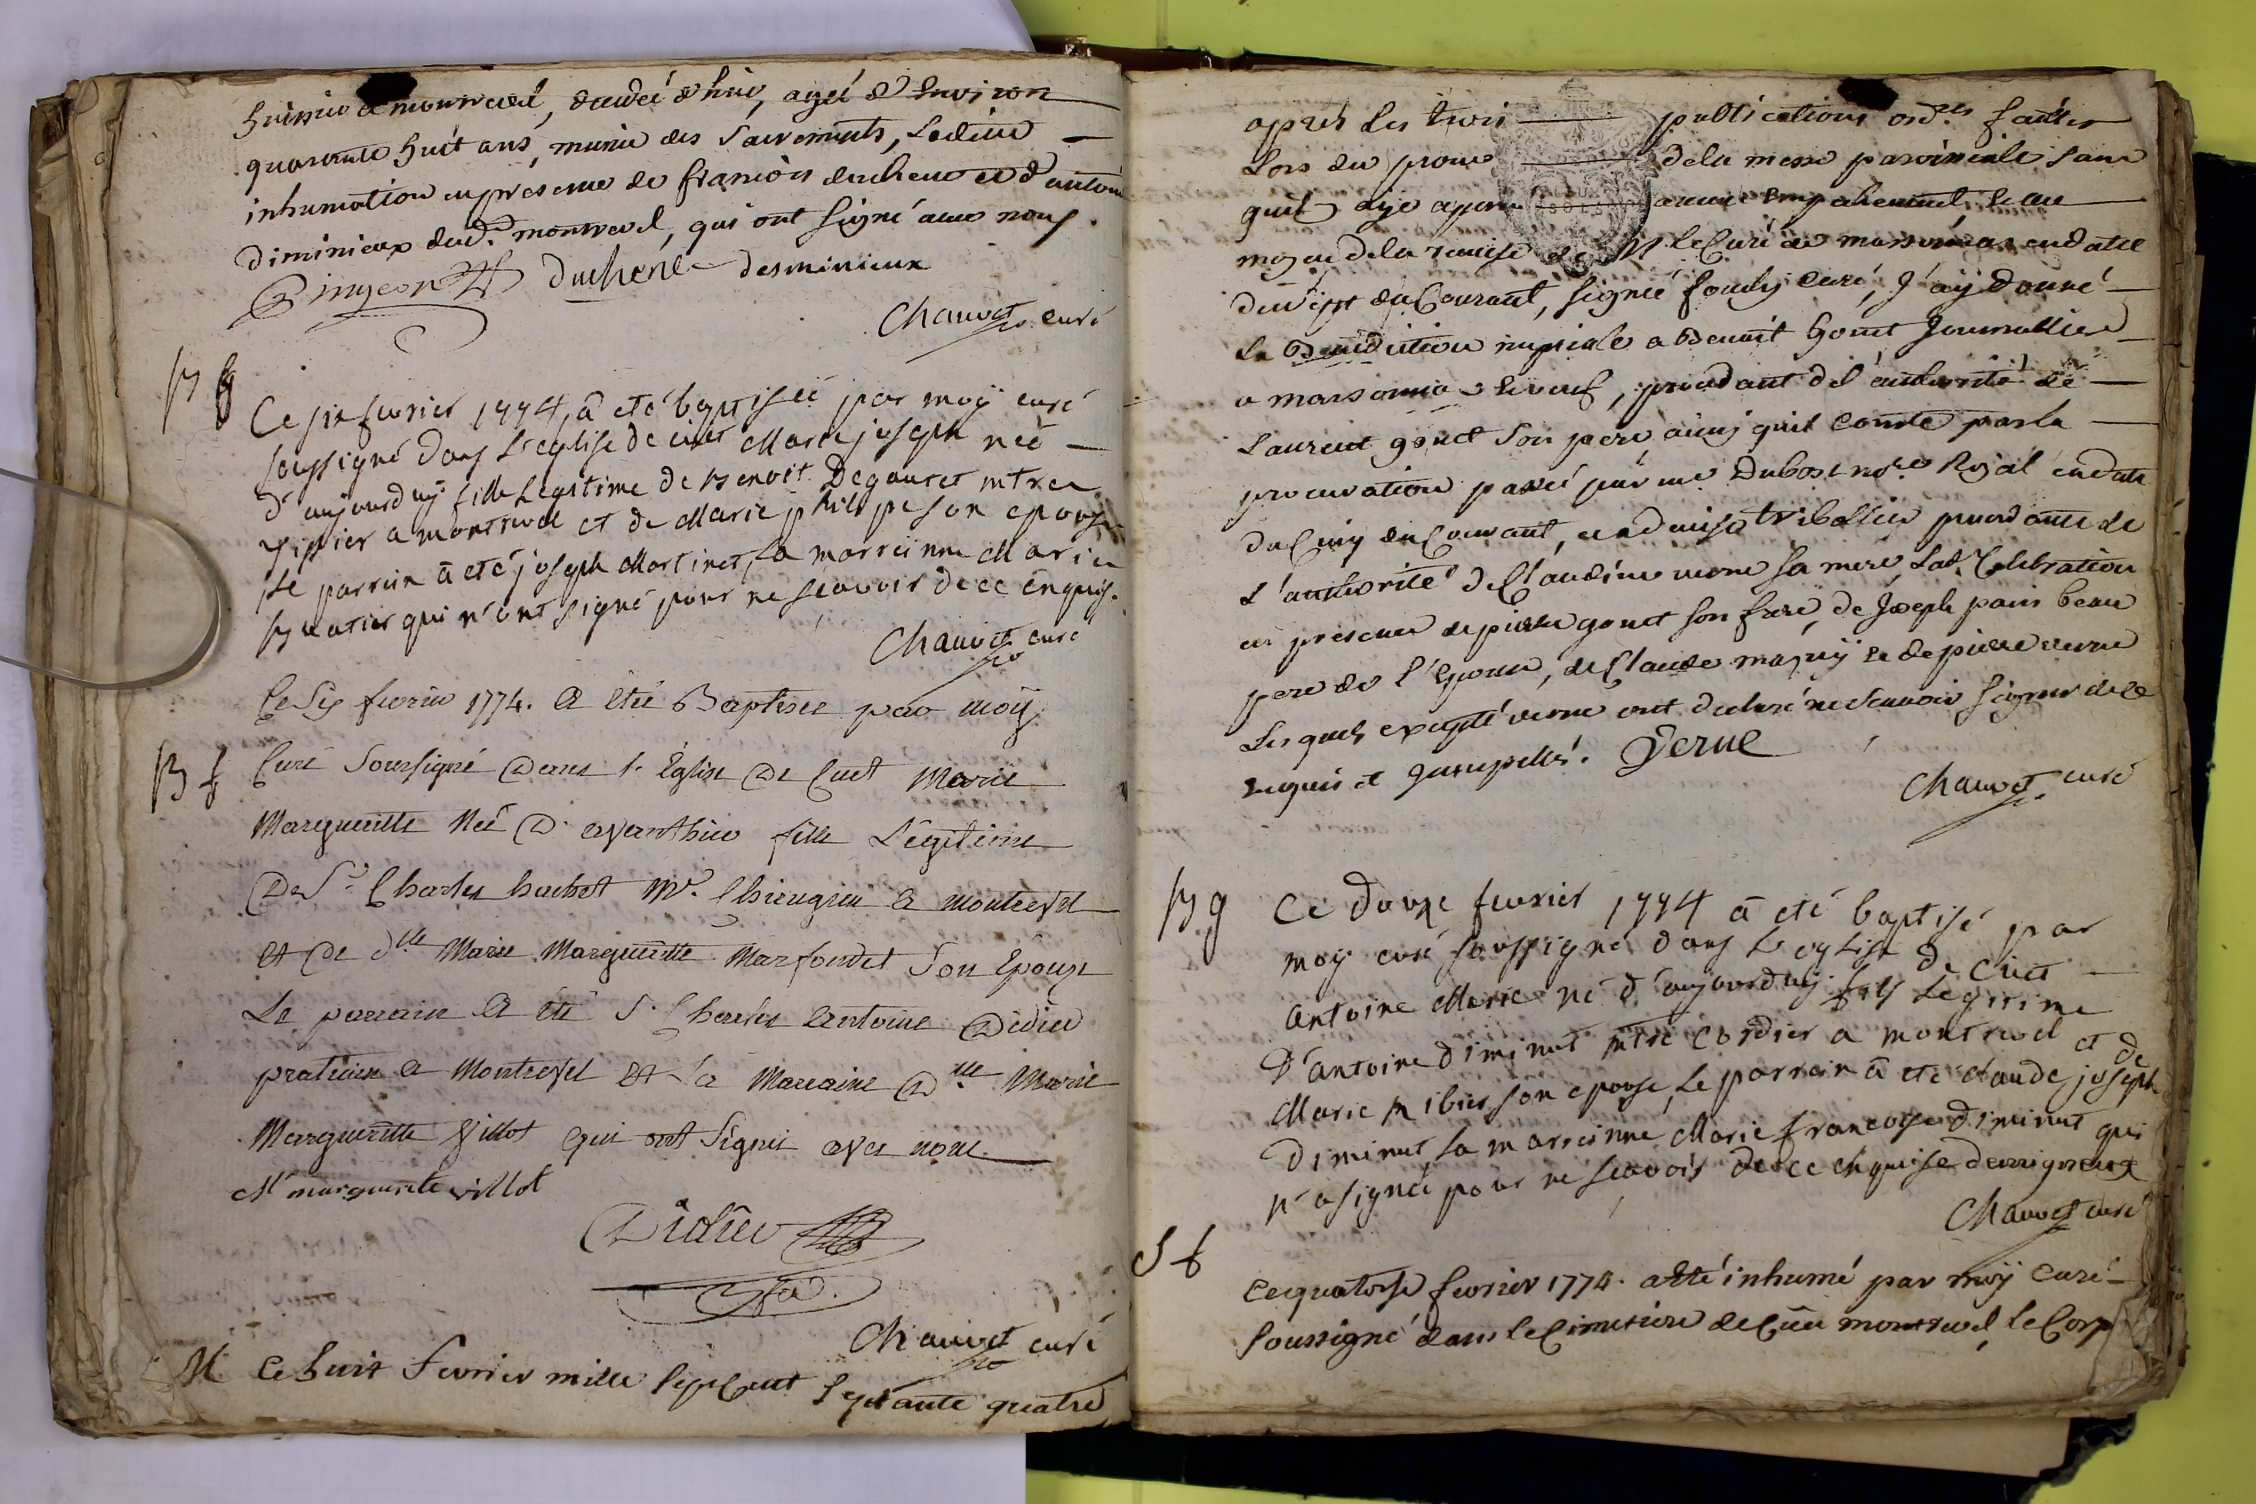 huissier a montrevel, decedé d'hier, agé d'environ
quarante huit ans, munie des sacrements, ladite
inhumation en presence de françois duchene et d'antoine
diminieux dud. montrevel, qui ont signé avec nous.
Pingeon duchene desminieux
Chauvet curé
B g
Ce six fevrier 1774, a eté baptiseé par moÿ curé
soussigné dans l'eglise de cuet Marie joseph neé
d'aujourduÿ fille Legitime de Benoit Degouret mtre
a montrevel et de Marie philipe son epouse
Le parrein a eté joseph Martinet, la marreinne Marie
qui n'ont signé pour ne sçavoir de ce enquis.
Chauvet curé
Ce six fevrier 1774. a été Baptisée par moÿ
B f
Curé soussigné dans l'Eglise de Cuet Marie
Margueritte Neé d'avanthier fille Légitime
De Sr. Charles huchet Mr. Chirurgien a montrevel
et de dlle Marie Margueritte Marfondet son Epouse
Le parrain a été Sr. Charles Antoine Didier
praticien a Montrevel et la Marraine Dlle Marie
Margueritte Villot qui ont signés avec nous.
M marguerite villot
Didier
Chauvet curé
M Ce huit fevrier mille sept cent septante quatre
apres les trois publications ordres faittes
Lors du prone de la messe paroissiale sans
quil aÿe apparu aucun empechement et au
moyen de la remise de Mr le Curé de marsonnas en datte
du sept du Courant, signé fouly curé, J'aÿ donné
La Benediction nuptiale a Benoit Gonet Journallier
a marsonnas et veuf, procedant de l'authorité de
Laurent gonet son pere, ainsy quil conste par la
procuration passeé par me Dubost nore Royal en date
du Cinq du Courant, et a denise tribollier procedante de
L'authorité de Claudine verne sa mere, Lade Celebration
en presence de pierre gonet son frere, de Joseph pain beau
pere de l'Epouse, de Claude maquÿ et de pierre verne
Lesquels excepté verne ont declaré ne scavoir signer de ce
enquis et interpellés. Verne
Chauvet curé
B g
Ce douze fevrier 1774 a eté baptisé par
moÿ curé soussigné dans L'eglise de Cuet
antoine Marie né d'aujourduÿ fils Legitime
d'antoine diminut mtre cordier a montrevel et de
Marie son epouse, Le parrein a eté claude joseph
diminut la marreinne Marie francoise diminut qui
n'a signé pour ne scavoir de ce enquise
Chauvet curé
S f
Ce quatorse fevrier 1774. a été inhumé par moÿ Curé
soussigné dans le Cimetiere de Cuet montrevel, le Corp